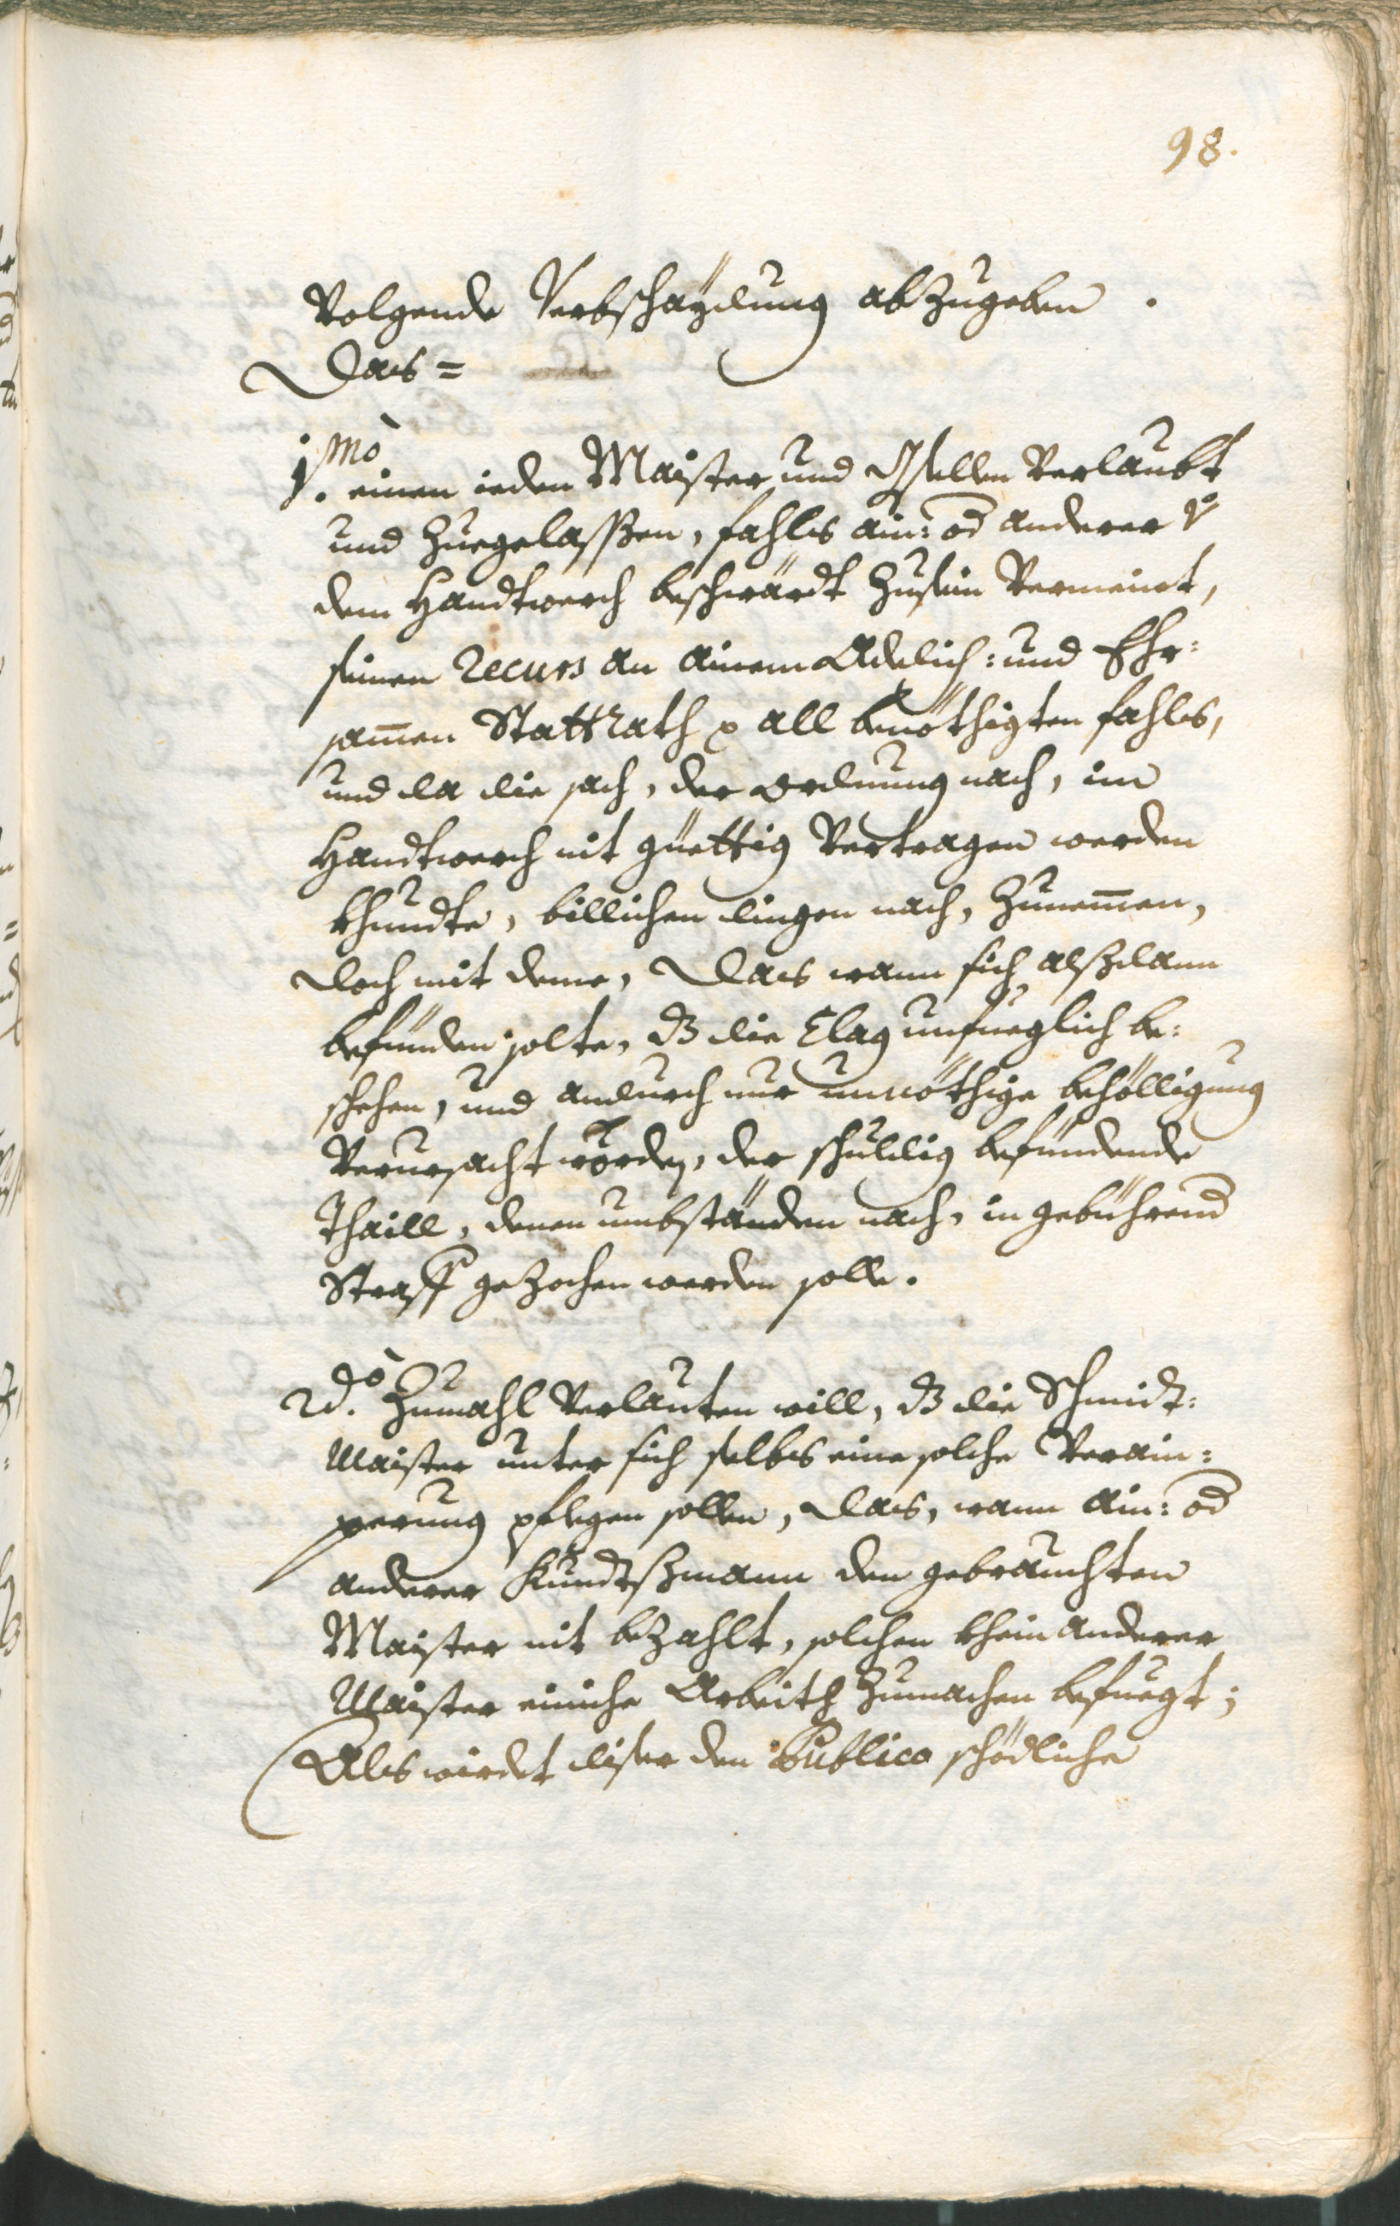 98.
Volgende Verbschaydung abzugeben.
Dass=
1.mo einen ieden Maister und Gsellen Verlaubt
und zuegelassen, fahls ain: od anderer v
dem Handtwerch beschwärdt zusein Vermeint,
seinen Recurs an ainem Adelich: und Ehr:
samen Stattrath p all benöthigten fahls,
und da die sach, der Ordnung nach, im
Handtwerch nit güettig Vertragen werden
khundte, billichen dingen nach, zunemen,
doch mit deme, Dass wann sich alßdann
befünden solte, dz die Clag unfueglich be:
schehen, und andurch nur unnöthige behölligung
Verursacht worden, der schuldig befündende
Thaill, denen umbständen nach, in gebührend
Straff gezochen werden solle.
2do. Zumahl Verlauten will, dz die Schmidt:
Maister unter sich selbs eine solche Verain:
perung pflegen sollen, dass, wann ain: od
anderer Kundtßmann den gebrauchten
Maister nit bezahlt, solchen khein anderer
Maister einiche Arbeith zumachen befuegt;
Als wirdet diser den Publico schödliche